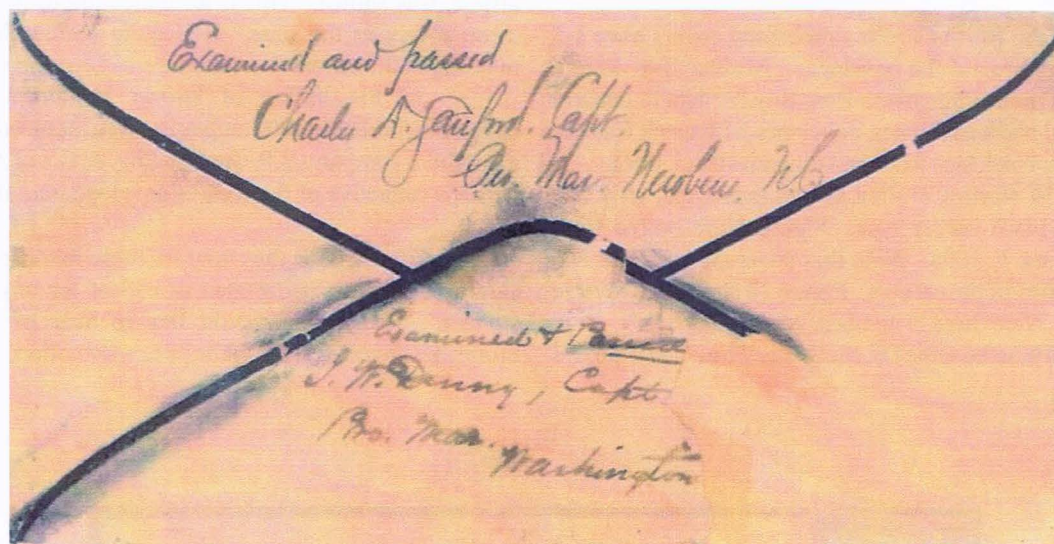 Examined and passed
Charles D. Sanford. Capt.
Pro. Mar. Newbern. N.C.
Examined & Passed
J. W. Denny, Capt
Pro. Mar.
Washington